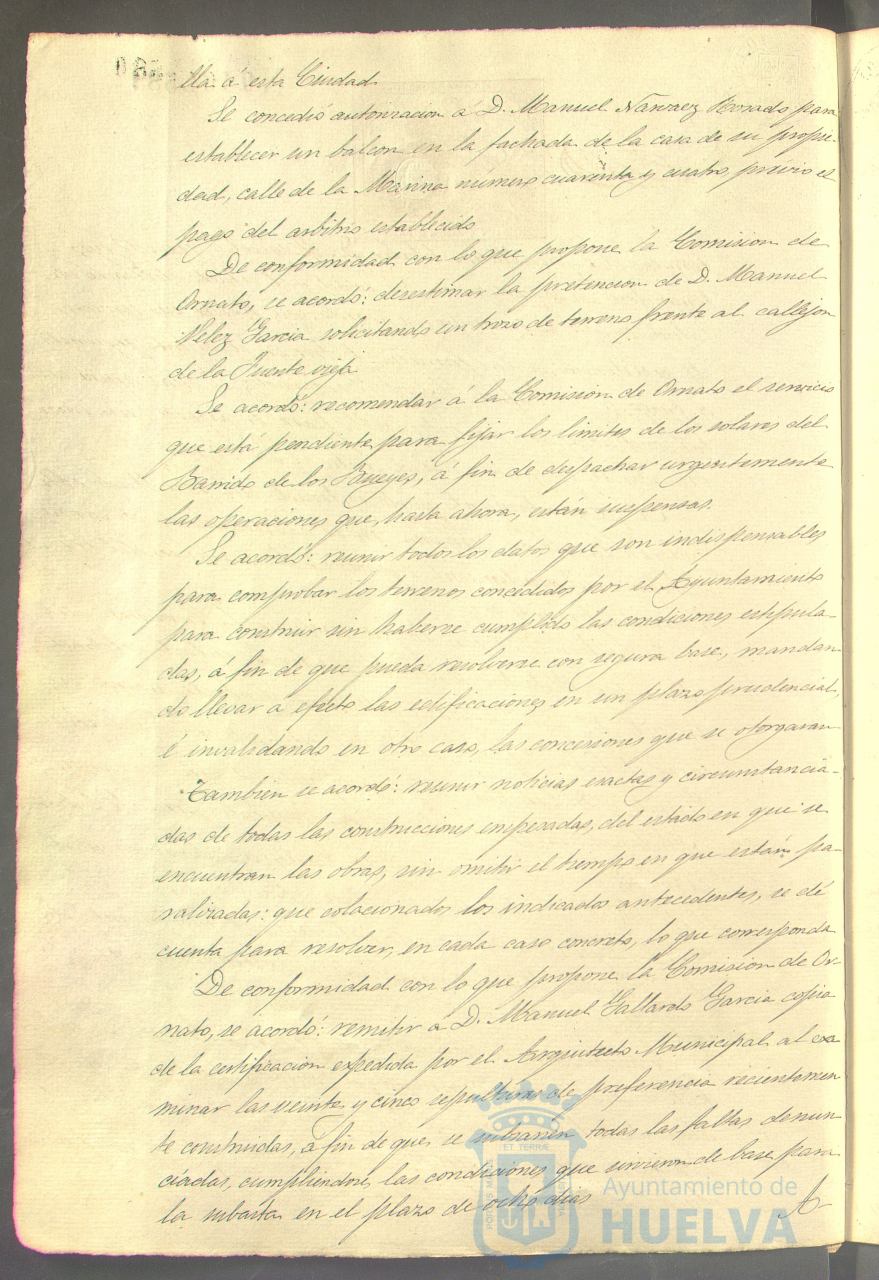 lla á esta Ciudad
Se concedió autorizacion á D. Manuel Narvaez Rosado para
establecer un balcon en la fachada de la casa de su propie-
dad, calle de la Marina numero cuarenta y cuatro, previo el
pago del arbitrio establecido
De conformidad con lo que propone la Comision de
Ornato, se acordó: desestimar la pretencion de D. Manuel
Velez Garcia solicitando un trozo de terreno frente al callejon
de la Fuente vieja
Se acordó: recomendar á la Comision de Ornato el servicio
que está pendiente para fijar los limites de los solares del
Barrido de los Bueyes, á fin de despachar urgentemente
las operaciones que, hasta ahora, están suspensas.
Se acordó: reunir todos los datos que son indispensables
para comprobar los terrenos concedidos por el Ayuntamiento
para construir sin haberse cumplido las condiciones estipula-
das, á fin de que pueda resolverse con segura base, mandan-
do llevar a efecto las edificaciones en un plazo prudencial,
é invalidando en otro caso, las concesiones que se otorgaran
Tambien se acordó: reunir noticias exactas y circunstancia-
das de todas las construcciones empezadas, del estado en que se
encuentran las obras, sin omitir el tiempo en que están pa-
ralizadas: que colacionados los indicados antecedentes, se dé
cuenta para resolver, en cada caso concreto, lo que corresponda
De conformidad con lo que propone la Comision de Or-
nato, se acordó: remitir á D. Manuel Gallardo Garcia copia
de la certificacion expedida por el Arquitecto Municipal al exa
minar las veinte y cinco sepulturas de preferencia recientemen
te construidas, á fin de que se subsanen todas las faltas denun
ciadas, cumpliendose las condiciones que sirvieron de base para
la subasta en el plazo de ocho dias
A
ET TERRÆ
Ayuntamiento de
HUELVA